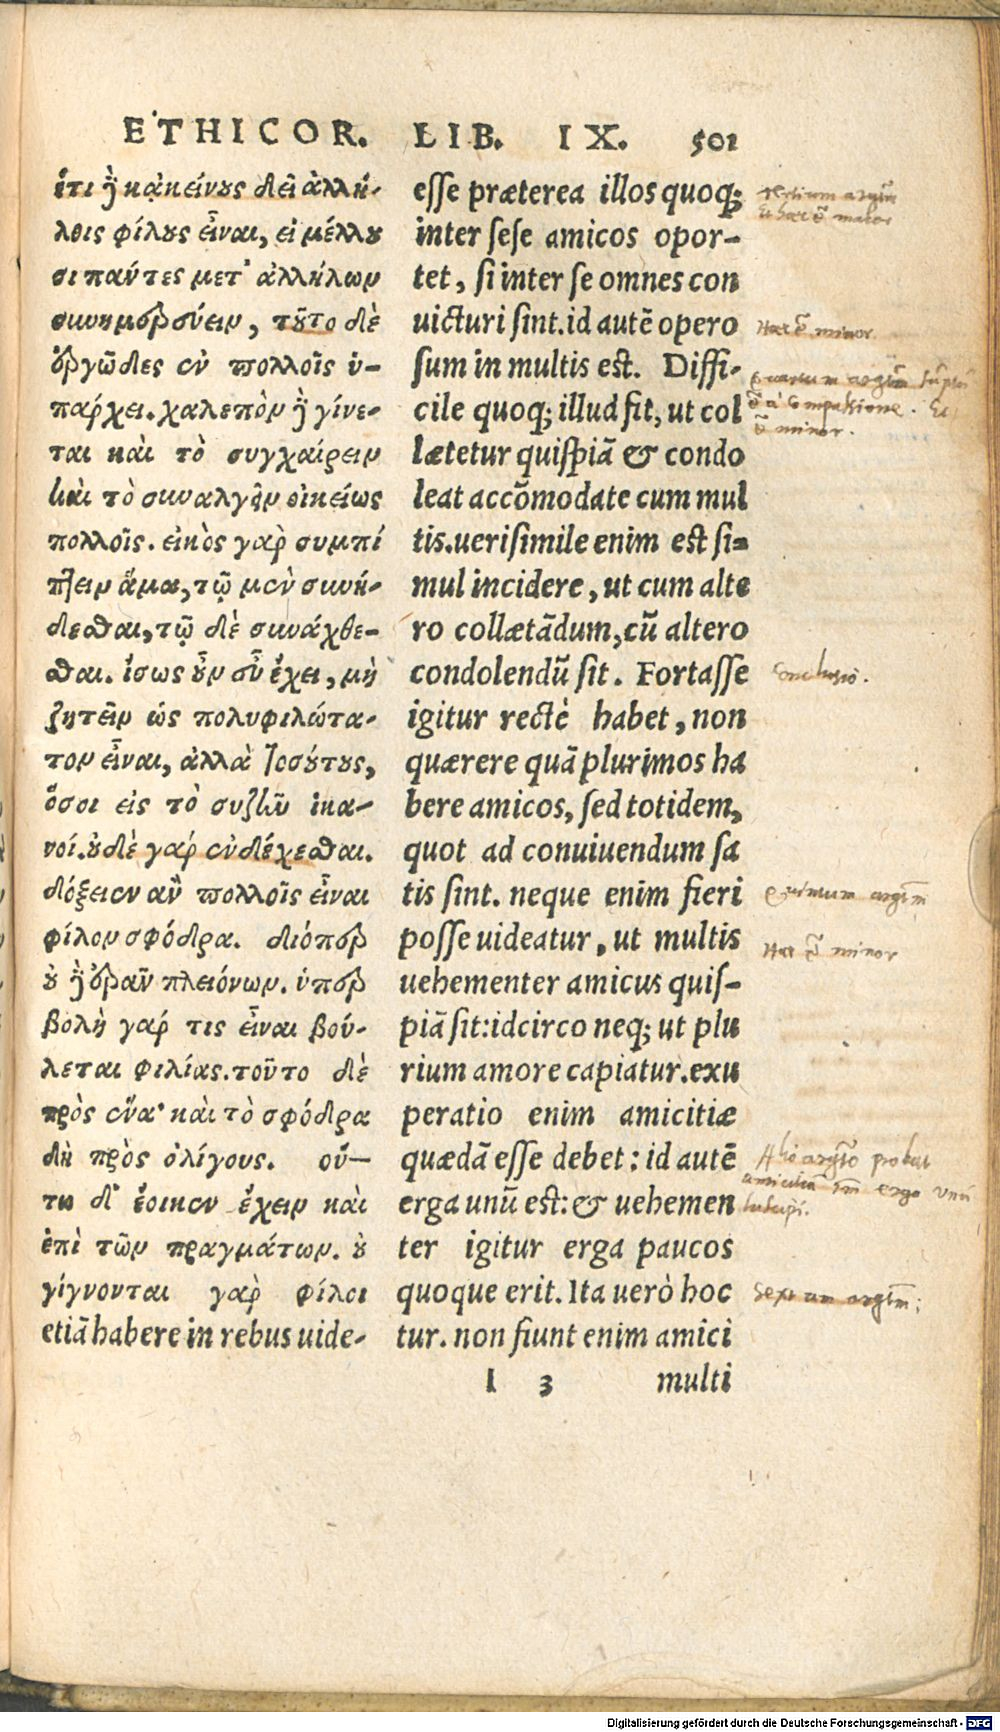 ETHICOR. LIB. IX. 501
ἔτι ἢ κᾀκείνους δεῖ ἀλλή-
λοις φίλους εἶναι, εἰ μέλλου
σι πάντες μετ' ἀλλήλων
συνημερεύειν, τοῦτο δὲ
ἐργῶδες ἐν πολλοῖς ὑ-
πάρχει. χαλεπὸν ἢ γίνε-
ται καὶ τὸ συγχαίρειν
καὶ τὸ συναλγεῖν οἰκείως
πολλοῖς. εἰκὸς γὰρ συμπί
πτειν ἅμα, τῷ μὲν συνή-
δεσθαι, τῷ δὲ συνάχθε-
σθαι. ἴσως οὖν εὖ ἔχει, μὴ
ζητεῖν ὡς πολυφιλώτα-
τον εἶναι, ἀλλὰ τοσούτους,
ὅσοι εἰς τὸ συζῆν ἱκα-
νοί. οὐδὲ γάρ ἐνδέχεσθαι.
δόξειεν ἂν πολλοῖς εἶναι
φίλον σφόδρα. διόπερ
οὐ ἢ ἐρᾶν πλειόνων. ὑπερ
βολὴ γάρ τις εἶναι βού-
λεται φιλίας. τοῦτο δὲ
πρὸς ἕνα· καὶ τὸ σφόδρα
δὴ πρὸς ὀλίγους. οὕ-
τω δ' ἔοικεν ἔχειν καὶ
ἐπὶ τῶν πραγμάτων. οὐ
γίγνονται γὰρ φίλοι
esse præterea illos quoq;
inter sese amicos opor-
tet, si inter se omnes con
uicturi sint. id autẽ opero
sum in multis est. Diffi-
cile quoq; illud fit, ut col
lætetur quispiã & condo
leat accõmodate cum mul
tis. uerisimile enim est si-
mul incidere, ut cum alte
ro collætãdum, cũ altero
condolendũ sit. Fortasse
igitur rectè habet, non
quærere quã plurimos ha
bere amicos, sed totidem,
quot ad conuiuendum sa
tis sint. neque enim fieri
posse uideatur, ut multis
uehementer amicus quis-
piã sit: idcirco neq; ut plu
rium amore capiatur. exu
peratio enim amicitiæ
quædã esse debet: id autẽ
erga unũ est: & uehemen
ter igitur erga paucos
quoque erit. Ita uerò hoc
etiã habere in rebus uide- tur. non fiunt enim amici
I 3 multi
tertium argũm
minor
conclusio.
argũm
minor
probat
amicitia ergo
argũm
Digitalisierung gefördert durch die Deutsche Forschungsgemeinschaft - DFG